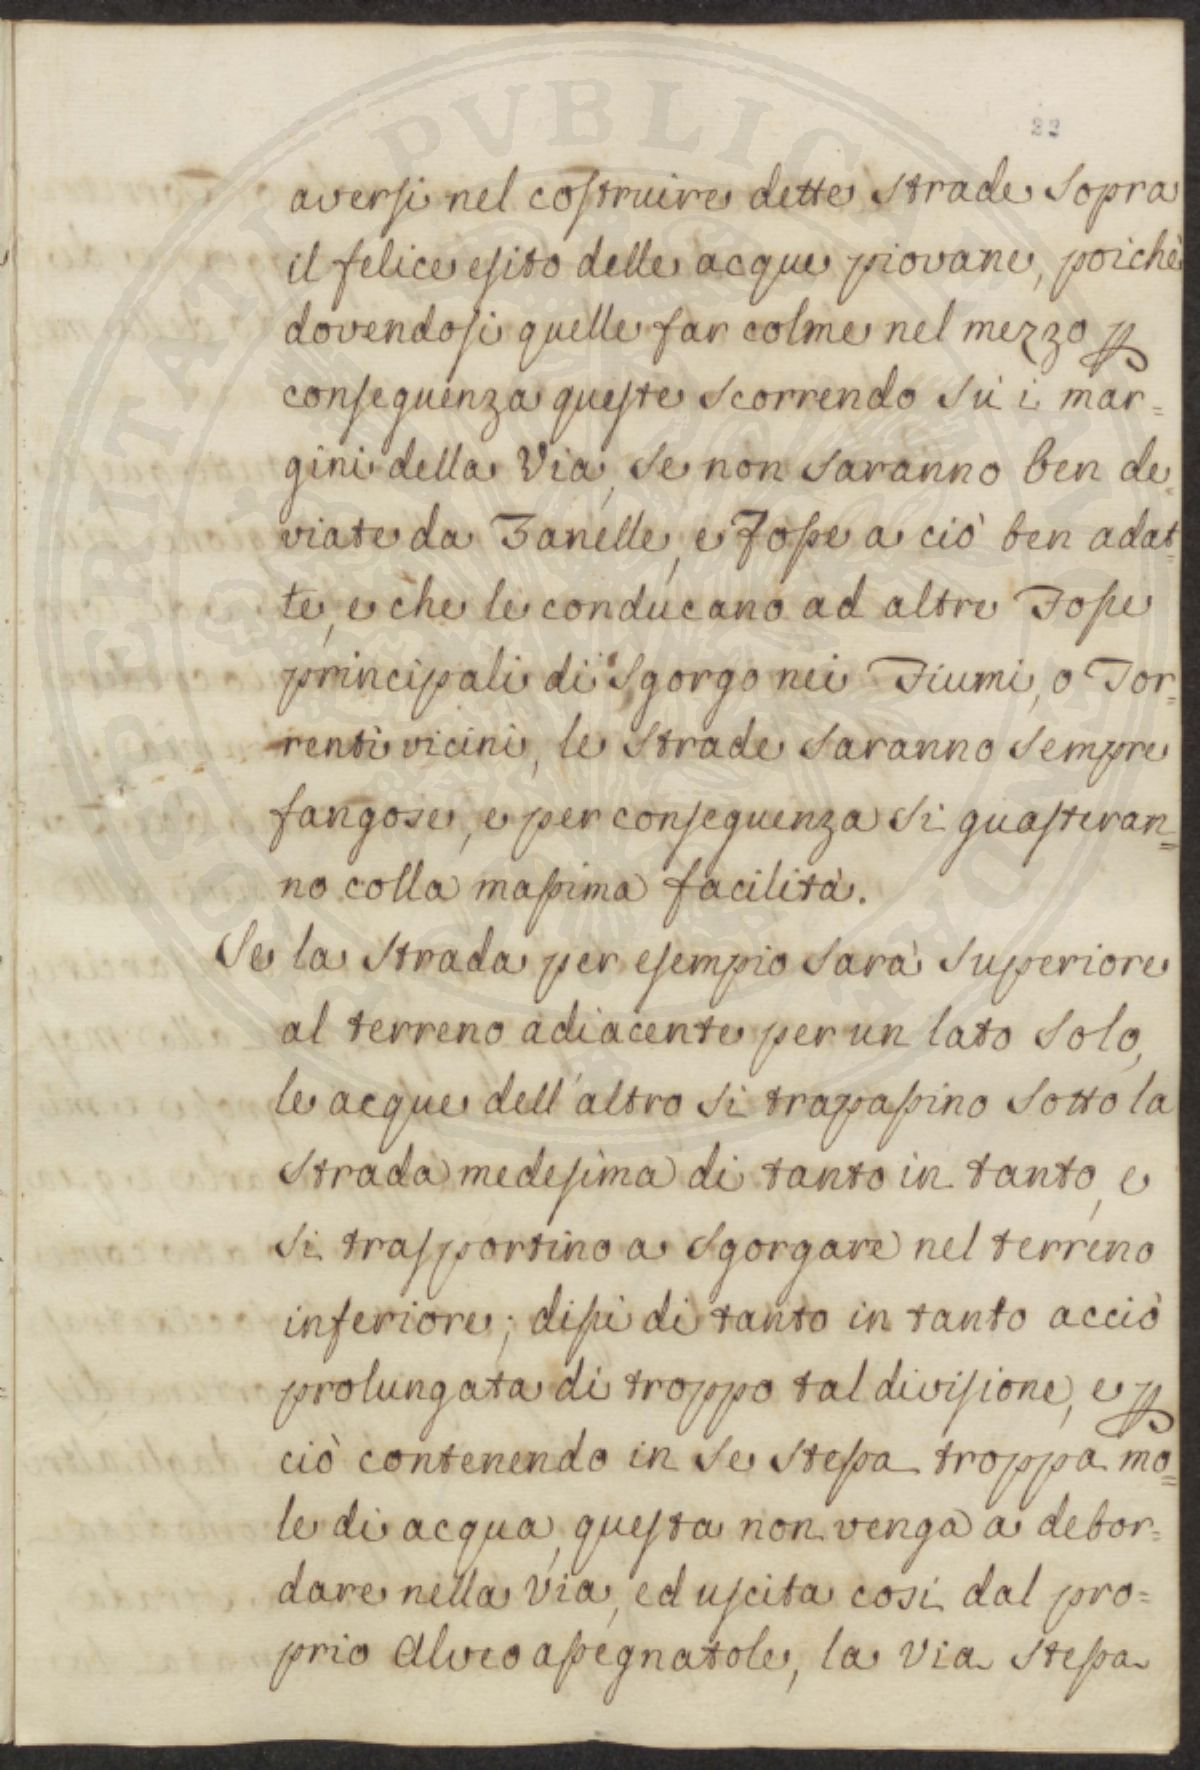 PROSPERITATI PUBLICAE
22
aversi nel costruire dette strade sopra
il felice esito delle acque piovane, poichè
dovendosi quelle far colme nel mezzo p
conseguenza queste scorrendo sù i mar=
gini della Via, se non saranno ben de=
viate da Zanelle, e Fosse a ciò ben adat=
te, e che le conducano ad altre Fosse
principali di Sgorgo nei Fiumi, o Tor=
renti vicini, le strade saranno sempre
fangose, e per conseguenza si guasteran=
no colla massima facilità.
Se la strada per esempio sarà superiore
al terreno adiacente per un lato solo,
le acque dell'altro si trapassino sotto la
strada medesima di tanto in tanto, e
si trasportino a sgorgare nel terreno
inferiore; dissi di tanto in tanto acciò
prolungata di troppo tal divisione, e p
ciò contenendo in se stessa troppa mo=
le di acqua, questa non venga a debor=
dare nella Via, ed uscita così dal pro=
prio Alveo assegnatole, la Via stessa